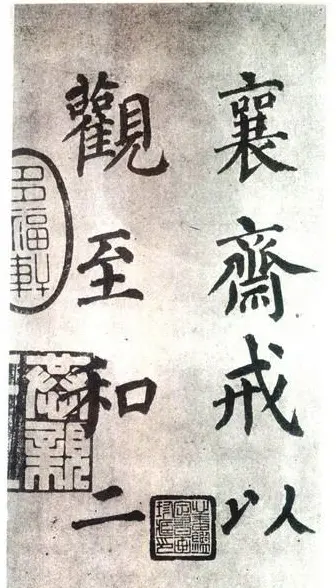 襄齋戒以
觀至和二
多福軒